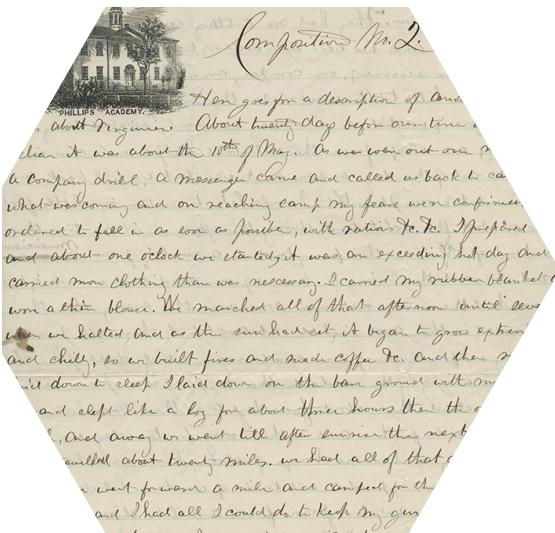 Composition No. 2.
PHILLIPS ACADEMY.
Here goes for a description of
about Virginia. About twenty days before our time
it was about the 10th of May. As we were out one
a company drill, a messenger came and called us back to
what was coming and on reaching camp my fears were confirmed
ordered to fall in as soon as possible, with rations &c. &c. I prepared
and about one oclock we started, it was an exceeding hot day and
carried more clothing than was nescessary. I carried my rubber blanket
worn a thin blouse. We marched all of that afternoon until
when we halted and as the sun had set, it began to grow
and chilly, so we built fires and made coffee &c. and then
down to sleep I laid down on the bare ground with
and slept like a log for about three hours then the
, and away we went till after sunrise the next
travelled about twenty miles. we had all of that
went forward a mile and camped for th
and I had all I could do to keep my gun